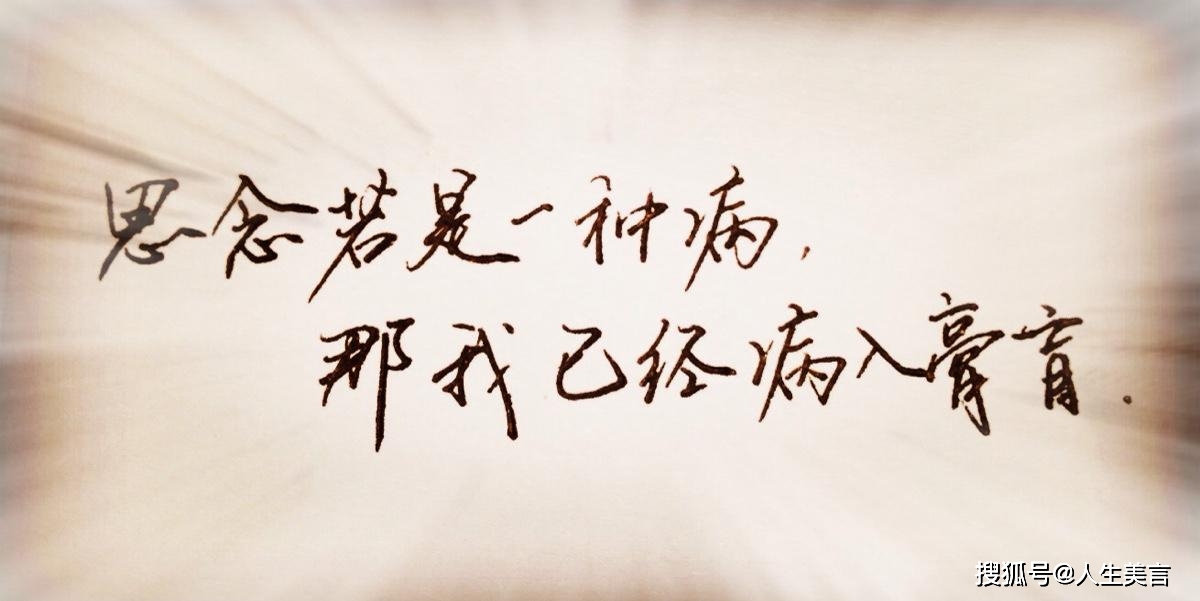 思念若是一种病,
那我已经病入膏肓.
搜狐号@人生美言